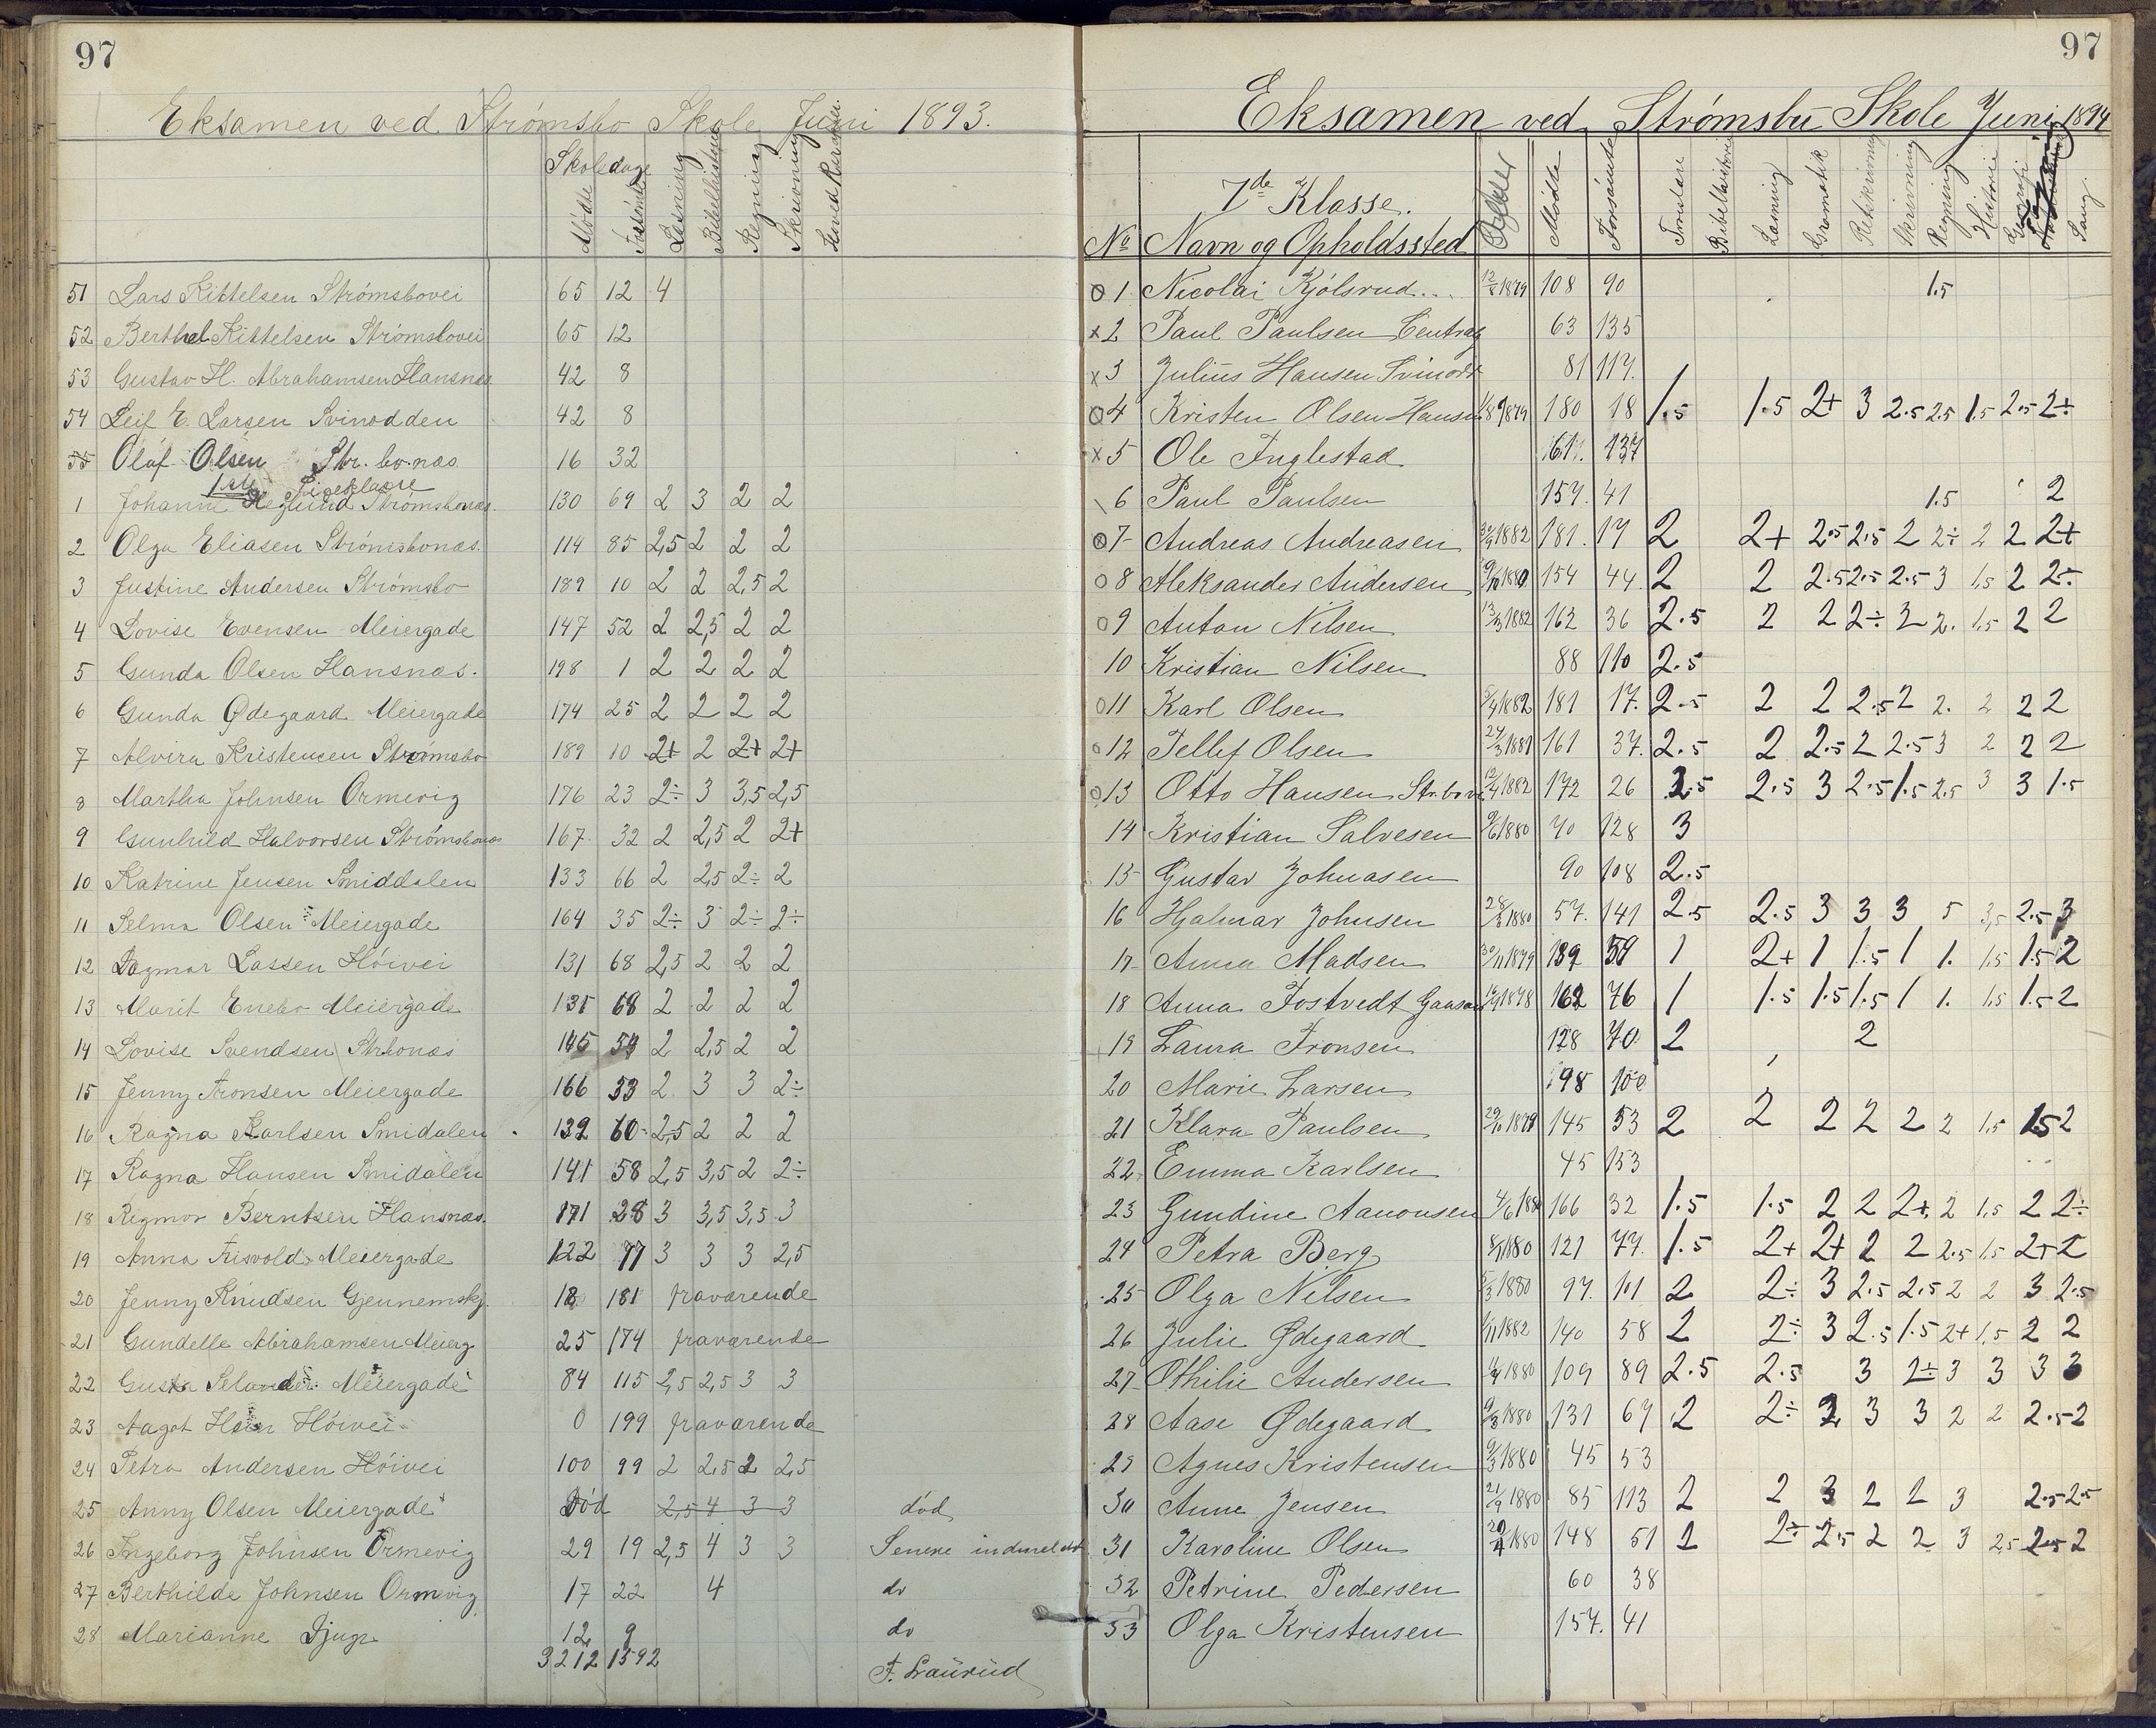 97
Eksamen ved Strømsbo Skole Juni 1893.
Skoledage
Mødte Forsømte Læsning Bibelhistorie Regning Skrivning
51 Lars Kittelsen Strømsbovei 65 12 4
52 Berthel Kittelsen Strømsbovei 65 12
53 Gustav H. Abrahamsen Hansnæs 42 8
54 Leif E. Larsen Svinodden 42 8
55 Olaf Olsen Str.bo.næs 16 32
1ste Pigeklasse
1 Johanne Heglund Strømsbonæs. 130 69 2 3 2 2
2 Olga Eliasen Strømsbonæs. 114 85 2,5 2 2 2
3 Justine Andersen Strømsbo 189 10 2 2 2,5 2
4 Lovise Evensen Meiergade 147 52 2 2,5 2 2
5 Gunda Olsen Hansnæs. 198 1 2 2 2 2
6 Gunda Ødegaard Meiergade 174 25 2 2 2 2
7 Alvira Kristensen Strømsbo 189 10 2+ 2 2+ 2+
8 Martha Johnsen Ormevig 176 23 2÷ 3 3,5 2,5
9 Gunhild Halvorsen Strømsbonæs 167 32 2 2,5 2 2+
10 Katrine Jensen Smiddalen 133 66 2 2,5 2÷ 2
11 Selma Olsen Meiergade 164 35 2÷ 3 2÷ 2÷
12 Dagmar Lassen Høivei 131 68 2,5 2 2 2
13 Marit Enebo Meiergade 131 68 2 2 2 2
14 Lovise Svendsen Strbonæs 145 54 2 2,5 2 2
15 Jenny Aronsen Meiergade 166 33 2 3 3 2÷
16 Ragna Karlsen Smidalen 139 60 2,5 2 2 2
17 Ragna Hansen Smidalen 141 58 2,5 3,5 2 2÷
18 Regmor Berntsen Hansnæs. 171 28 3 3,5 3,5 3
19 Anna Trisvold Meiergade 122 77 3 3 3 2,5
20 Jenny Knudsen Gjennemskj. 18 181 fraværende
21 Gundelle Abrahamsen Meierg 25 174 fraværende
22 Gusta Selander Meiergade 84 115 2,5 2,5 3 3
23 Aagot Høivei 0 199 fraværende
24 Petra Andersen Høivei 100 99 2 2,5 2 2,5
25 Anny Olsen Meiergade Død 2,5 4 3 3 død
26 Ingeborg Johnsen Ormevig 29 19 2,5 4 3 3 Senere indmeldt
27 Berthilde Johnsen Ormevig 17 22 4 do
28 Marianne Djupe 12 9 do
3212 1592
F. Laurud
97
Eksamen ved Strømsbu Skole Juni 1894
7de Klasse.
No Navn og Opholdssted Alder Mødte Forsømte Troslære Bibelhistorie Læsning Gramatik Retskrivning Skrivning Regning Historie Geografi Sang
1 Nicolai Kjølsrud 12/8 1879 108 90 1.5
x 2 Paul Paulsen Centralg 63 135
x 3 Julius Hansen Svinodd 81 117.
4 Kristen Olsen Hansn 1879 180 18 1.5 1.5 2+ 3 2.5 2.5 1.5 2.5 2÷
x 5 Ole Fuglestad 61. 137
6 Paul Paulsen 157. 41 1.5 2
7 Andreas Andreasen 1882 181. 17 2 2+ 2.5 2.5 2 2÷ 2 2 2+
8 Aleksander Andersen 154 44. 2 2 2.5 2.5 2.5 3 1.5 2 2÷
9 Anton Nilsen 13/3 1882 162 36 2.5 2 2 2÷ 2 2. 1.5 2 2
10 Kristian Nilsen 88 110 2.5
11 Karl Olsen 5/4 1882 181 17. 2.5 2 2 2.5 2 2. 2 2 2
12 Tellef Olsen 161 37. 2.5 2 2.5 2 2.5 3 2 2 2
13 Otto Hansen Str.bov 12/4 1882 172 26 2.5 2.5 3 2.5 1.5 2.5 3 3 1.5
14 Kristian Salvesen 1880 70 128 3
15 Gustav Johnasen 90 108 2.5
16 Hjalmar Johnsen 1880 57. 141 2.5 2.5 3 3 3 5 3,5 2.5 3
17 Anna Madsen 30/11 1879 139 59 1 2+ 1 1.5 1 1. 1.5 1.5 2
18 Anna Tostvedt 1878 162 76 1 1.5 1.5 1.5 1 1. 1.5 1.5 2
19 Laura Aronsen 128 70 2 2
20 Marie Larsen 98 100
21 Klara Paulsen 29/10 1879 145 53 2 2 2 2 2 2 1.5 1.5 2
22 Emma Karlsen 45 153
23 Gundine Aanonsen 166 32 1.5 1.5 2 2 2+ 2 1.5 2 2÷
24 Petra Berg 1880 121 77. 1.5 2+ 2+ 2 2 2.5 1.5 2+ 2
25 Olga Nilsen 5/3 1880 97. 101 2 2÷ 3 2.5 2.5 2 2 3 2.5
26 Julie Ødegaard 1882 140 58 2 2÷ 3 2.5 1.5 2+ 1.5 2 2
27 Othilie Andersen 1880 109 89 2.5 2.5 3 2÷ 3 3 3 3
28 Aase Ødegaard 1880 131 67 2 2÷ 2 3 3 2 2 2.5 2
29 Agnes Kristensen 9/3 1880 45 53
30 Anne Jensen 21/9 1880 85 113 2 2 3 2 2 3 2.5 2.5
31 Karoline Olsen 1880 148 51 2 2÷ 2.5 2 2 3 2.5 2.5 2
32 Petrine Pedersen 60 38
33 Olga Kristensen 157. 41